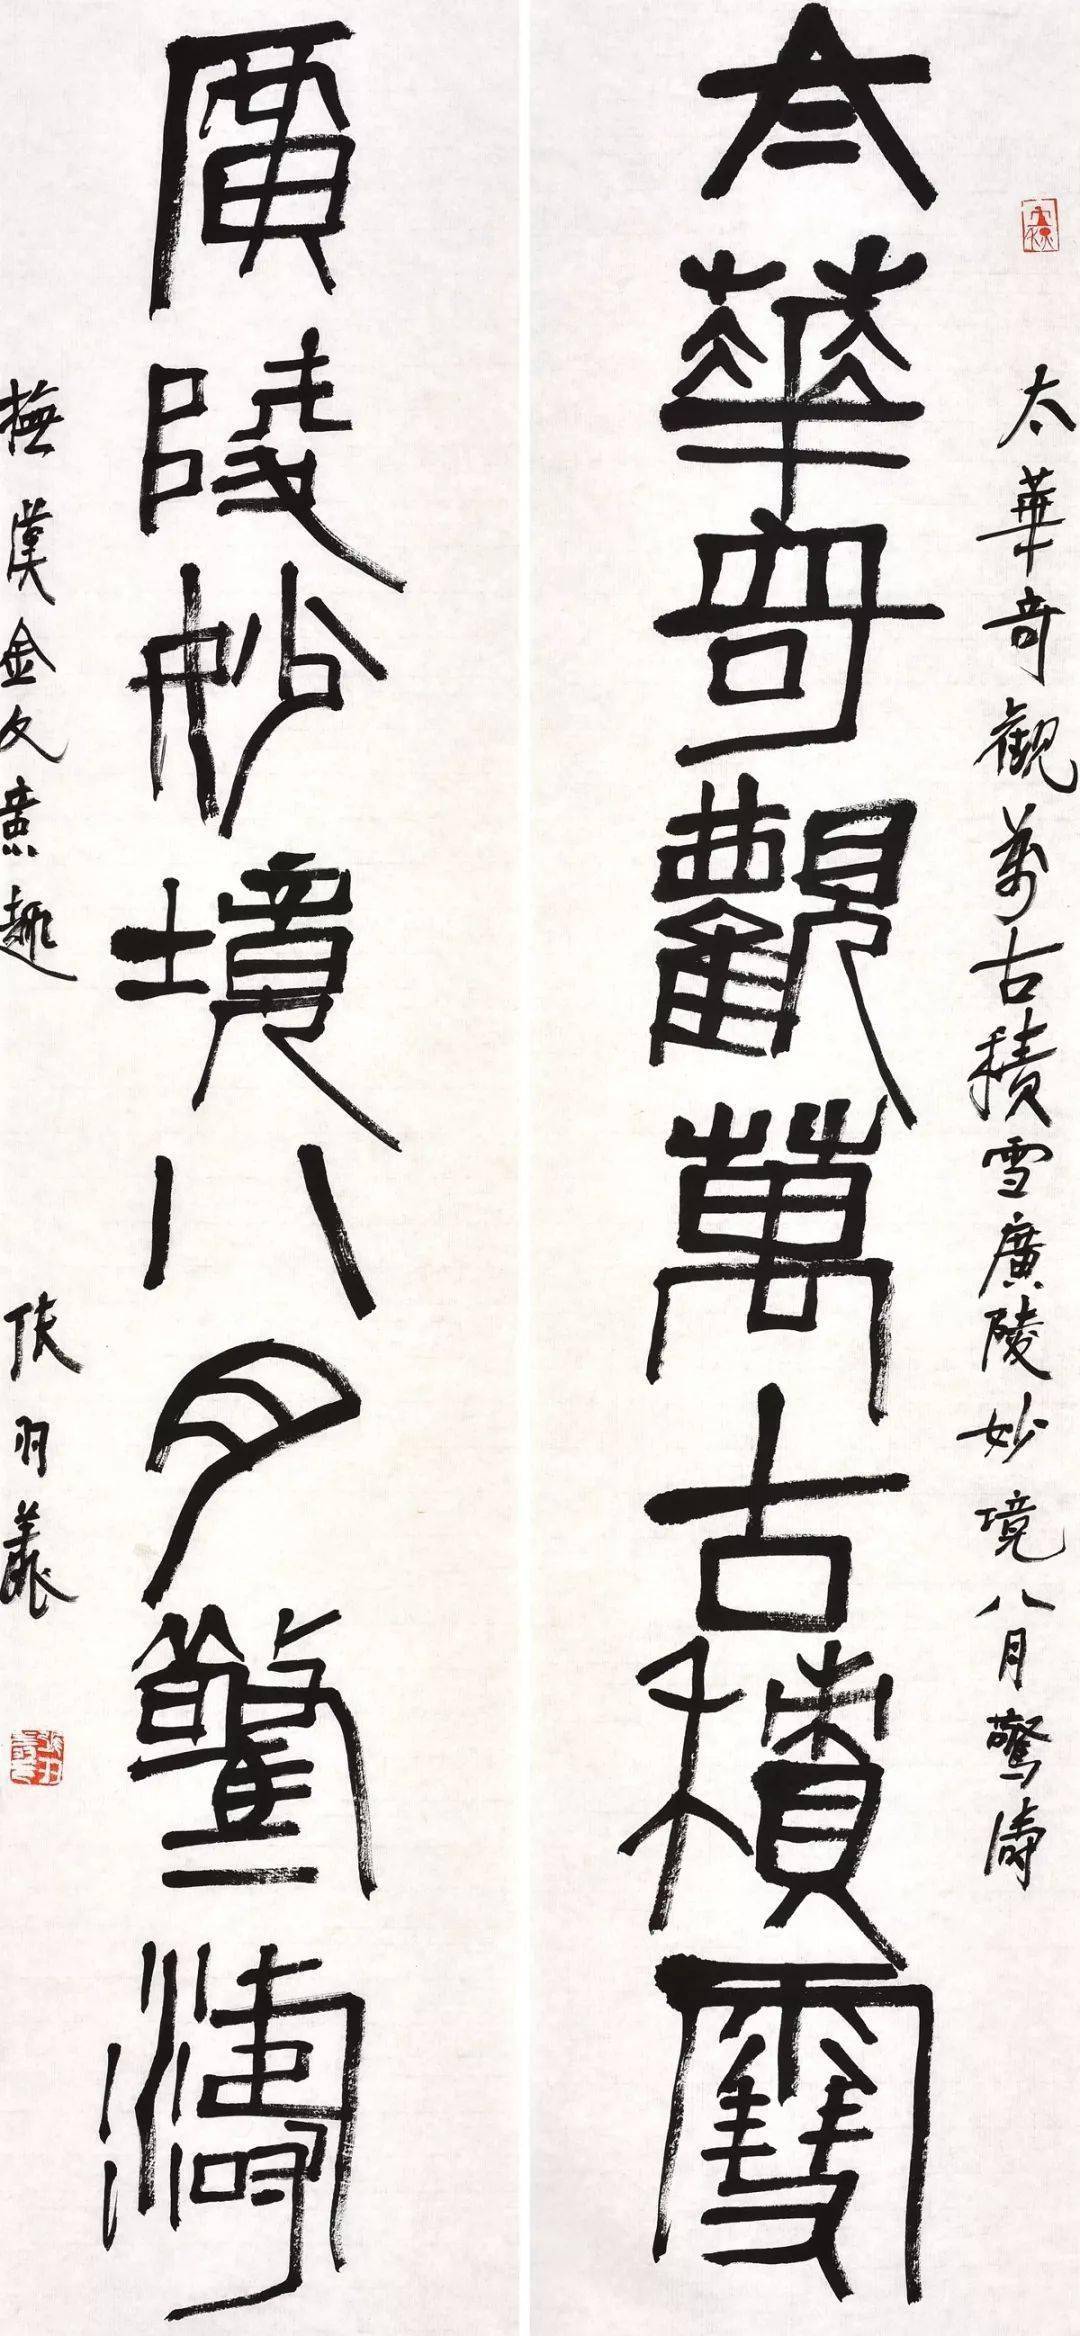 太華奇觀萬古積雪廣陵妙境八月驚濤
太華奇觀萬古積雪
廣陵妙境八月驚濤
撫漢金文意趣